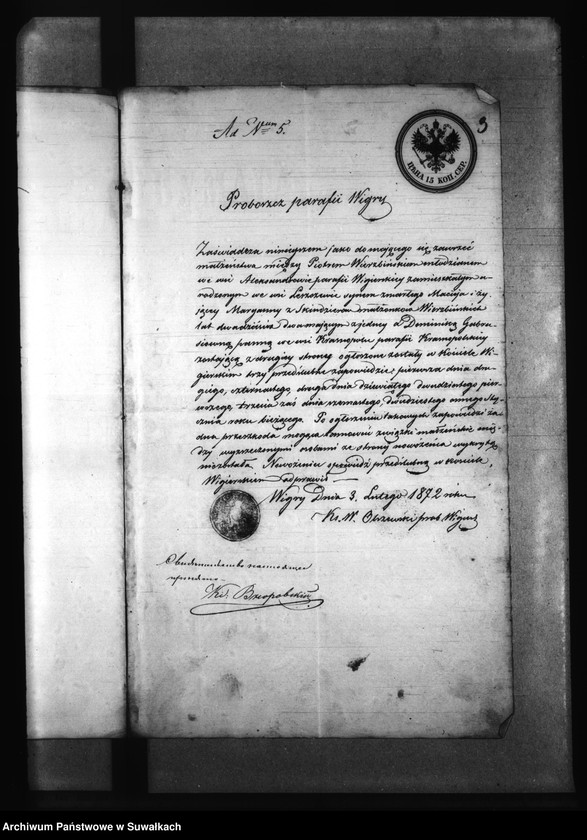 Ad Nrum 5.
3
ЦѢНА 15 КОП. СЕР.
Proboszcz parafii Wigry
Zaświadcza niniejszem jako do mającego się zawrzeć
małżeństwa między Piotrem Wierzbińskim młodzianem
we wsi Aleksandrowie parafii Wigierskiej zamieszkałym u-
rodzonym we wsi synem zmarłego Macieja i ży-
jącej Maryanny z małżonków Wierzbińskich
lat dwadzieścia dwa mającym z jednej a Dominiką Gabra-
siówną panną we wsi Krasnopolu parafii Krasnopolskiej
zostającą z drugiej strony ogłoszone zostały w Kościele Wi-
gierskim trzy przedślubne zapowiedzie: pierwsza dnia dru-
giego, czternastego, druga dnia dziewiątego dwudziestego pier-
wszego, trzecia zaś dnia szesnastego, dwudziestego ósmego Sty-
cznia roku bieżącego. Po ogłoszeniu takowych zapowiedzi ża-
dna przeszkoda mogąca tamować związki małżeńskie mię-
dzy wyrzeczonymi osobami ze strony nowożeńca wykrytą
niezostała. Nowożeniec spowiedź przedślubną w Kościele
Wigierskim odprawił
Wigry Dnia 3. Lutego 1872 roku
Ks. W. Olszewski prob. Wigier
Ks.
Archiwum Państwowe w Suwałkach